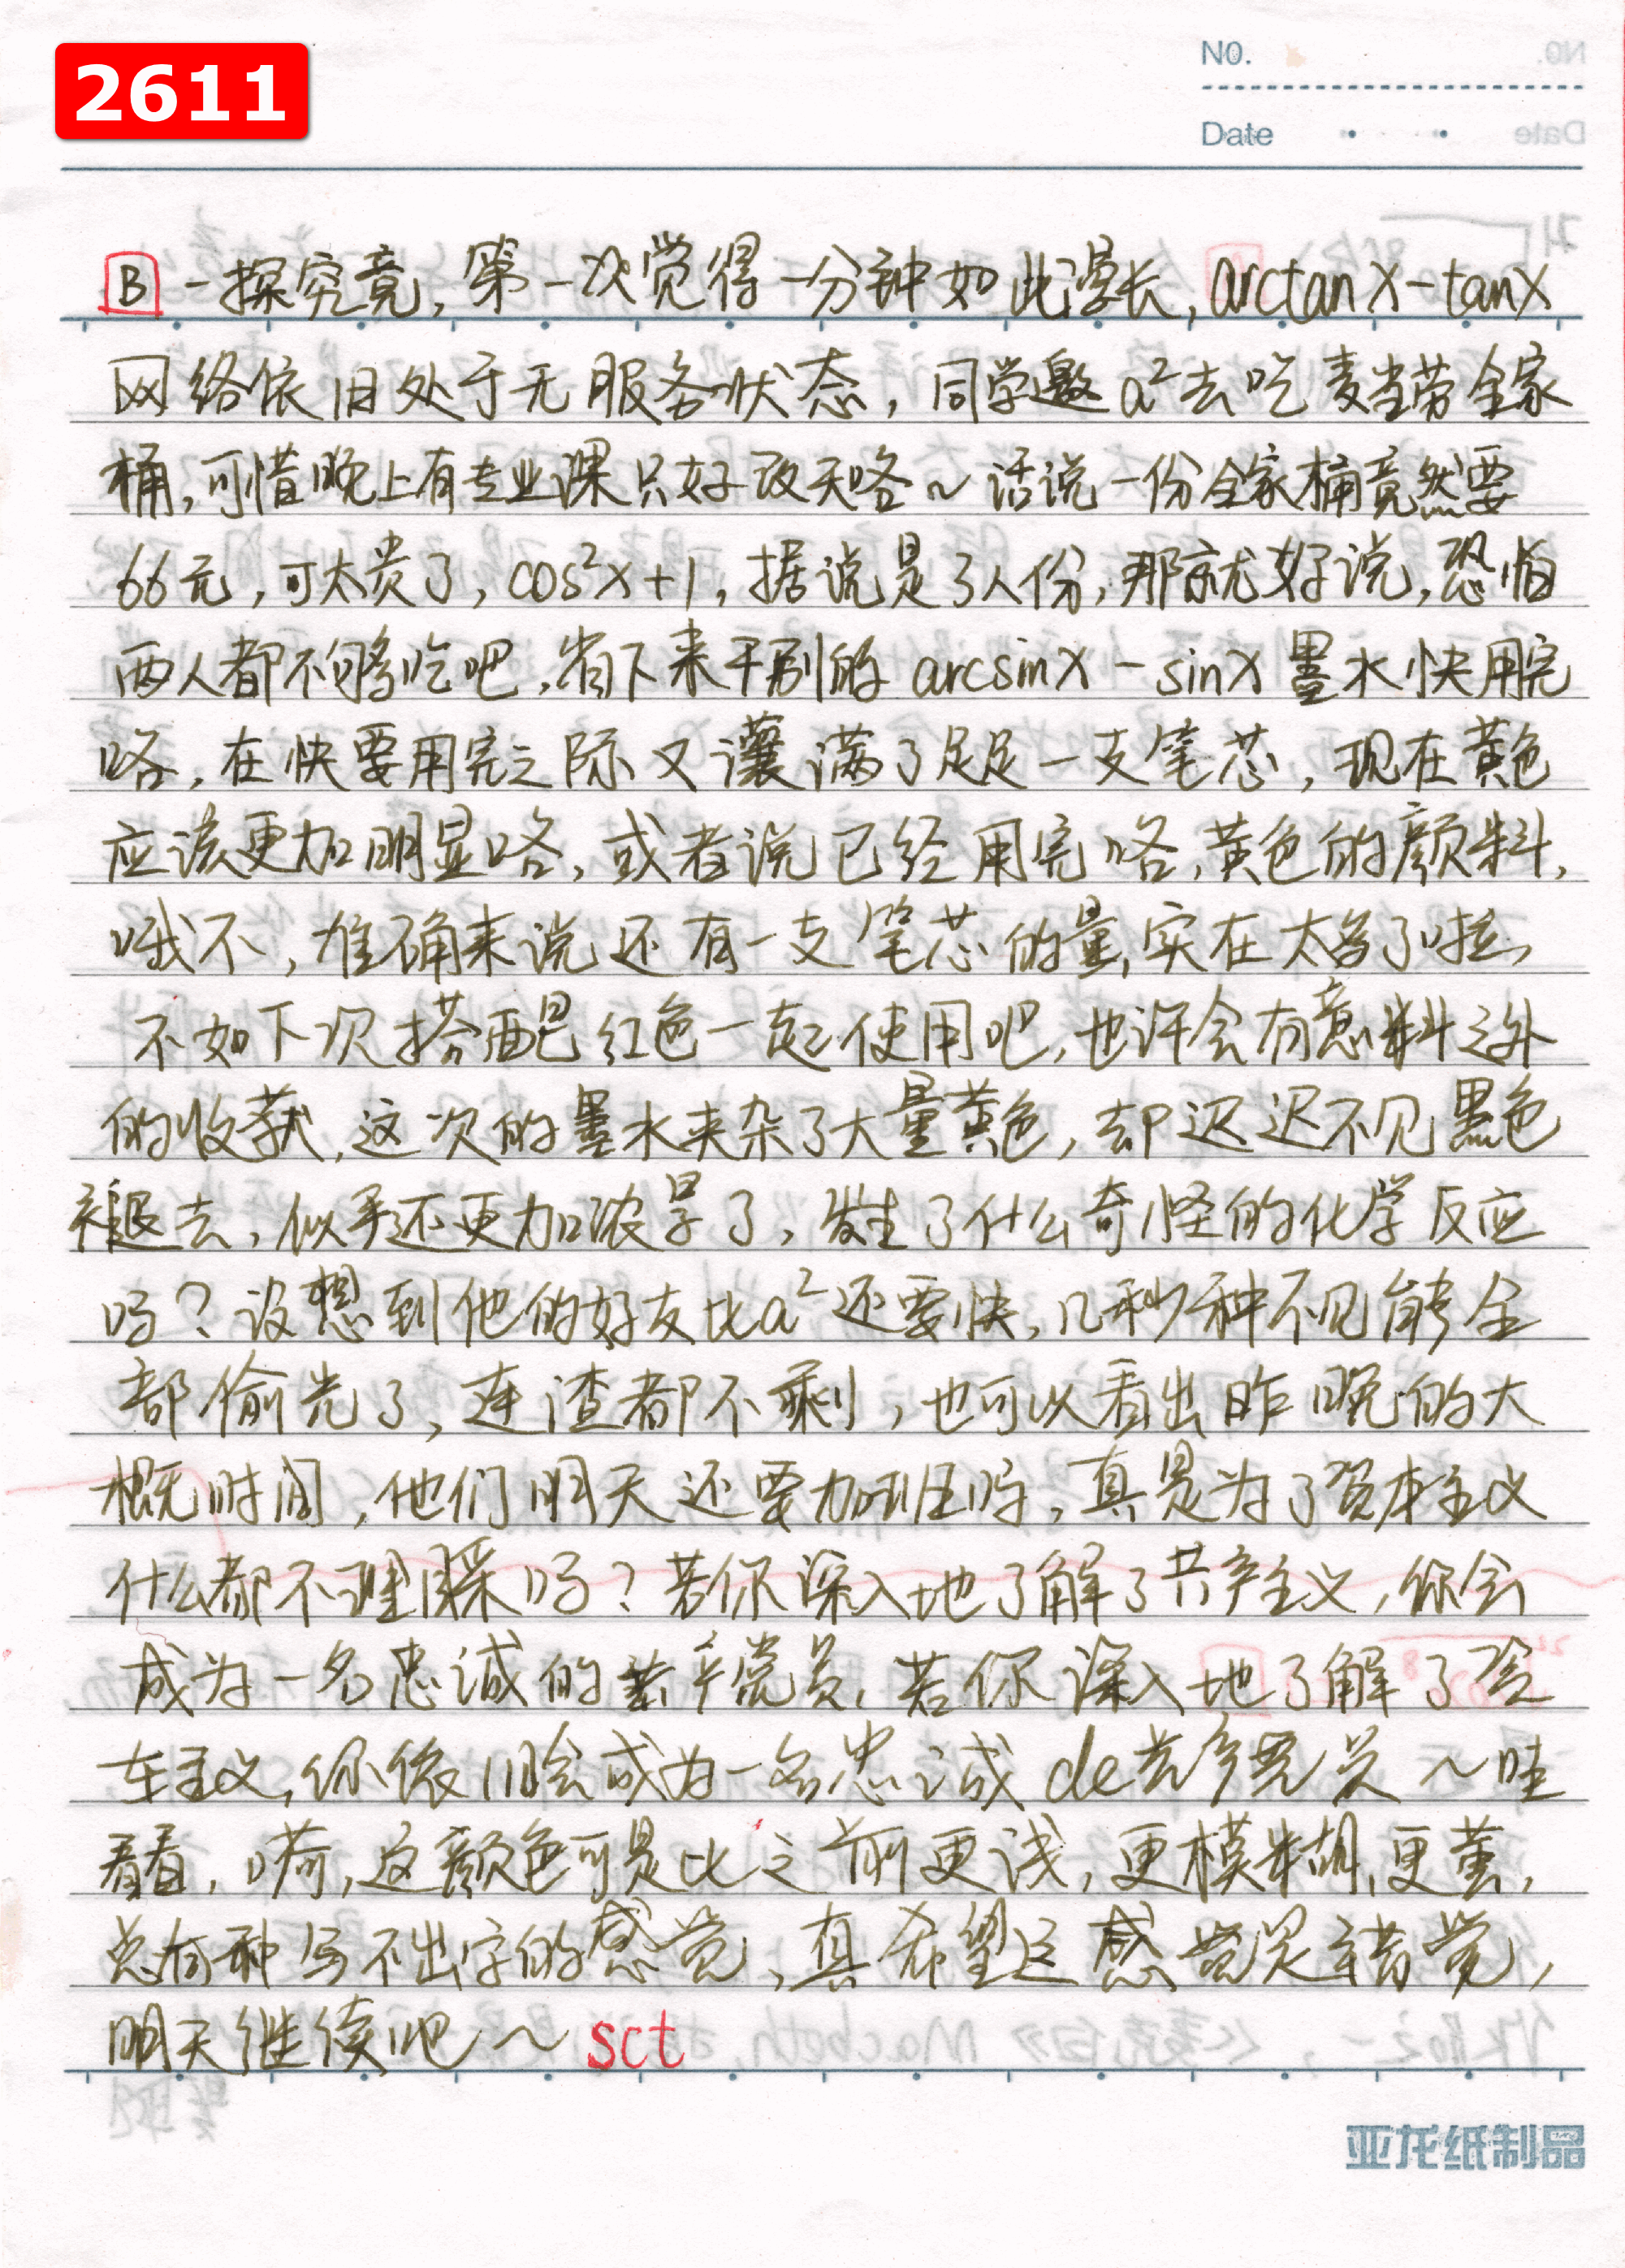 2611
NO.
Date
B 一探究竟，第一次觉得一分钟如此漫长，arctanx-tanx
网络依旧处于无服务状态，同学邀a²去吃麦当劳全家
桶，可惜晚上有专业课只好改天咯~话说一份全家桶竟然要
66元，可太贵了，cos²x+1，据说是3人份，那就好说，恐怕
两人都不够吃吧，省下来干别的 arcsinx-sinx 墨水快用完
咯，在快要用完之际又灌满了足足一支笔芯，现在黄色
应该更加明显咯，或者说已经用完咯，黄色的颜料，
哦不，准确来说还有一支笔芯的量，实在太多了啦，
不如下次搭配红色一起使用吧，也许会有意料之外
的收获，这次的墨水夹杂了大量黄色，却迟迟不见黑色
褪去，似乎还更加浓厚了，发生了什么奇怪的化学反应
吗？没想到他的好友比a²还要快，几秒种不见能全
部偷光了，连渣都不剩，也可以看出昨晚的大
概时间，他们明天还要加班哈，真是为了资本主义
什么都不理睬吗？若你深入地了解了共产主义，你会
成为一名忠诚的共产党员，若你深入地了解了资
本主义，你依旧会成为一名忠诚de共产党员~哇
看看，嗬，这颜色可是比之前更浅，更模糊，更黄，
总有种写不出字的感觉，真希望这感觉是错觉，
明天继续吧~sct
亚龙纸制品